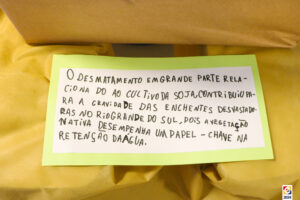 O DESMATAMENTO EM GRANDE PARTE RELA-
CIONA DO AO CULTIVO DA SOJA, CONTRIBUIU PA
RA A GRAVIDADE DAS ENCHENTES DEVASTADO-
RAS NO RIO GRANDE DO SUL, POIS A VEGETAÇÃO
NATIVA DESEMPENHA UM PAPEL-CHAVE NA
RETENÇÃO DA ÁGUA.